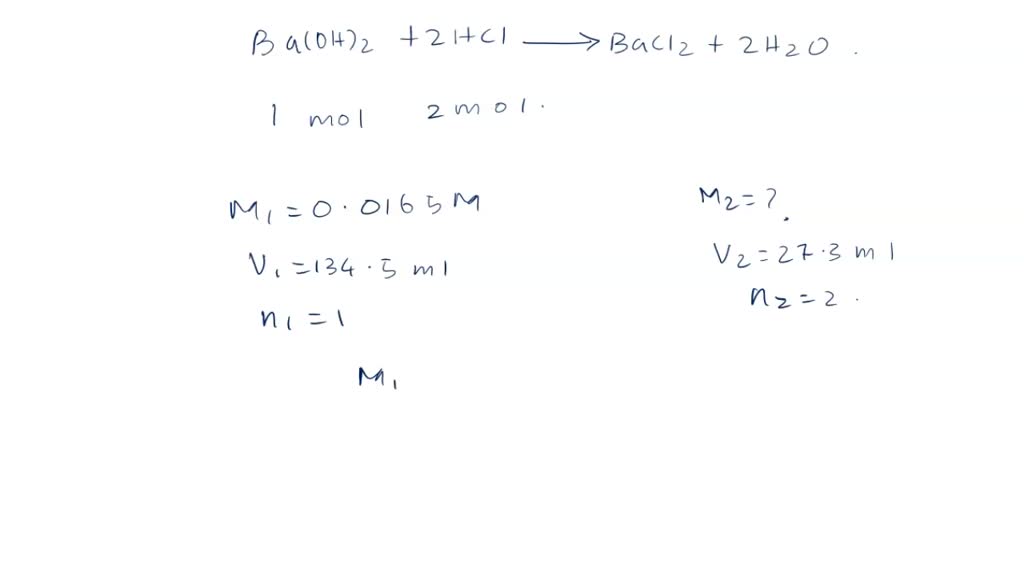 Ba(OH)2 + 2HCl ⟶ BaCl2 + 2H2O .
1 mol 2 mol.
M1 = 0.0165 M
V1 = 134.5 ml
n1 = 1
M1
M2 = ?.
V2 = 27.3 ml
n2 = 2 .